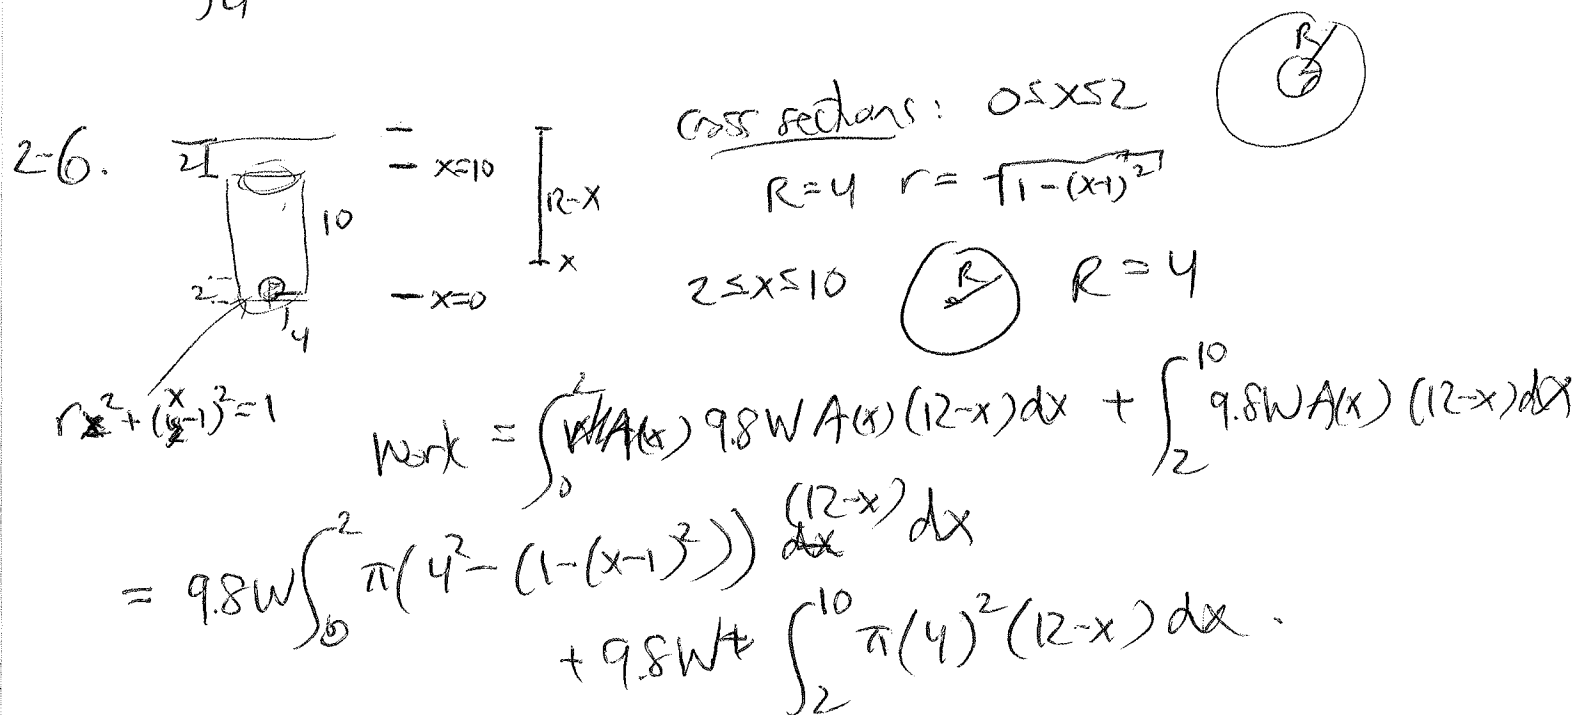 2-6.
2
10
2
4
x=10
x=0
12-x
x
cross sections: 0≤x≤2
R
R=4 r= √(1-(x-1)²)
2≤x≤10
R
R=4
r²+(x-1)²=1
Work = ∫₀² 9.8W A(x) (12-x)dx + ∫₂¹⁰ 9.8W A(x) (12-x)dx
= 9.8W ∫₀² π(4²-(1-(x-1)²)) (12-x) dx
+ 9.8W ∫₂¹⁰ π(4)² (12-x) dx.